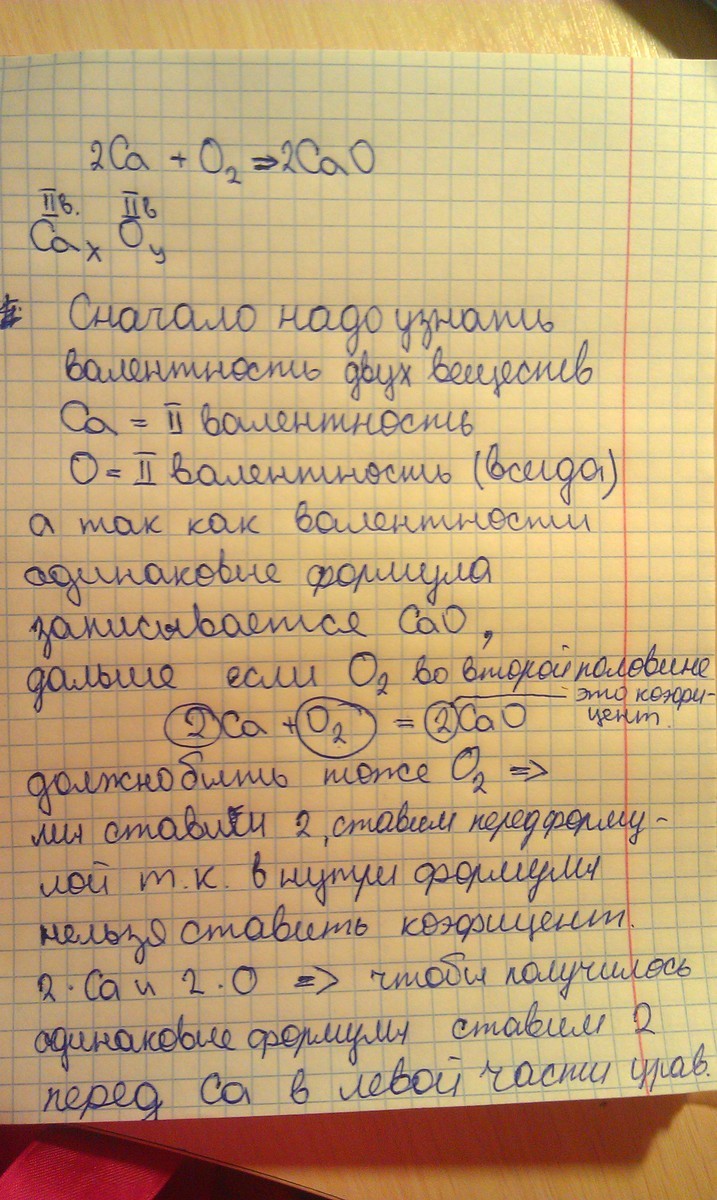 2Ca + O₂ ⇒ 2CaO
IIв. IIв
Caₓ Oᵧ
Сначало надо узнать
валентность двух веществ
Ca = II валентность
O = II валентность (всегда)
а так как валентности
одинаковые формула
записывается CaO,
дальше если O₂ во второй половине
это коэфи-
цент.
2Ca + O₂ = 2CaO
должно быть тоже O₂ ⇒
мы ставим 2, ставим перед форму-
лой т.к. внутри формулы
нельзя ставить коэфицент.
2·Ca и 2·O ⇒ чтобы получилось
одинаковые формулы ставим 2
перед Ca в левой части урав.